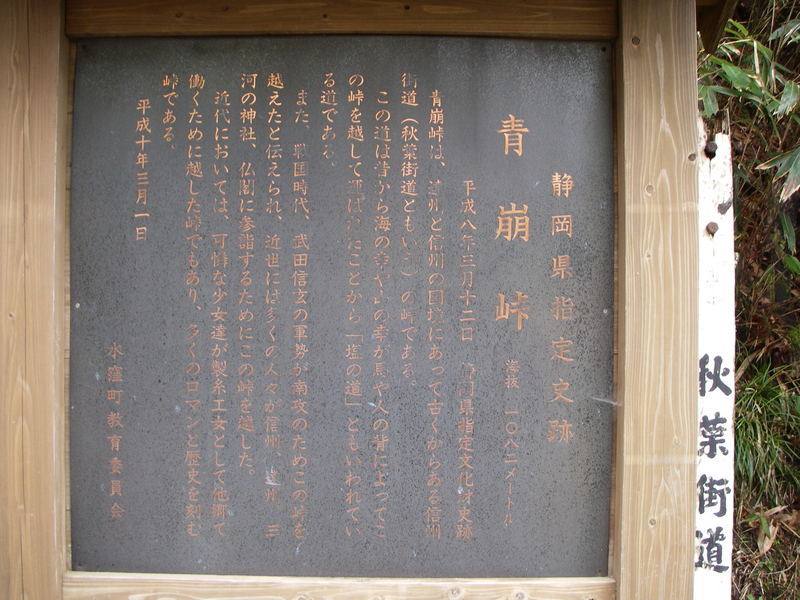 静岡県指定史跡
青崩峠 海抜 一〇八二メートル
平成八年三月十二日 静岡県指定文化財史跡
青崩峠は、遠州と信州の国境にあって古くからある信州
街道（秋葉街道ともいう）の峠である。
この道は昔から海の幸や山の幸が馬や人の背によってこ
の峠を越して運ばれたことから「塩の道」ともいわれてい
る道である。
また、戦国時代、武田信玄の軍勢が南攻のためこの峠を
越えたと伝えられ、近世には多くの人々が信州、遠州、三
河の神社、仏閣に参詣するためにこの峠を越した。
近代においては、可憐な少女達が製糸工女として他郷で
働くために越した峠でもあり、多くのロマンと歴史を刻む
峠である。
平成十年三月一日
水窪町教育委員会
秋葉街道